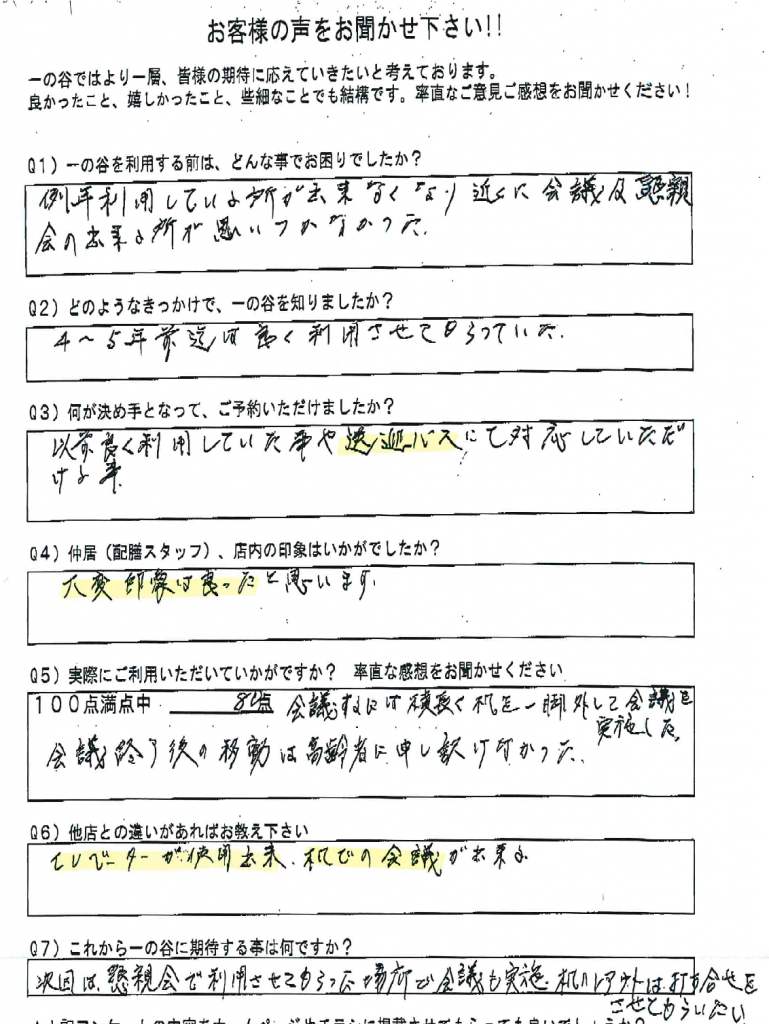 お客様の声をお聞かせ下さい!!
一の谷ではより一層、皆様の期待に応えていきたいと考えております。
良かったこと、嬉しかったこと、些細なことでも結構です。率直なご意見ご感想をお聞かせください!
Q1)一の谷を利用する前は、どんな事でお困りでしたか?
例年利用している所が出来なくなり近くに会議及懇親
会の出来る所が思いつかなかった.
Q2)どのようなきっかけで、一の谷を知りましたか?
4~5年前迄は良く利用させてもらっていた.
Q3)何が決め手となって、ご予約いただけましたか?
以前良く利用していた事や送迎バスにて対応していただ
ける事.
Q4)仲居(配膳スタッフ)、店内の印象はいかがでしたか?
大変印象は良かったと思います.
Q5)実際にご利用いただいていかがですか? 率直な感想をお聞かせください
100点満点中 80点 会議するには横長く机を一脚外して会議を
実施した。
会議終了後の移動は高齢者に申し訳けなかった.
Q6)他店との違いがあればお教え下さい
エレベーターが使用出来、机での会議が出来る
Q7)これから一の谷に期待する事は何ですか?
次回は、懇親会で利用させてもらった場所で会議も実施、机のレイアウトは打ち合せを
させてもらいたい